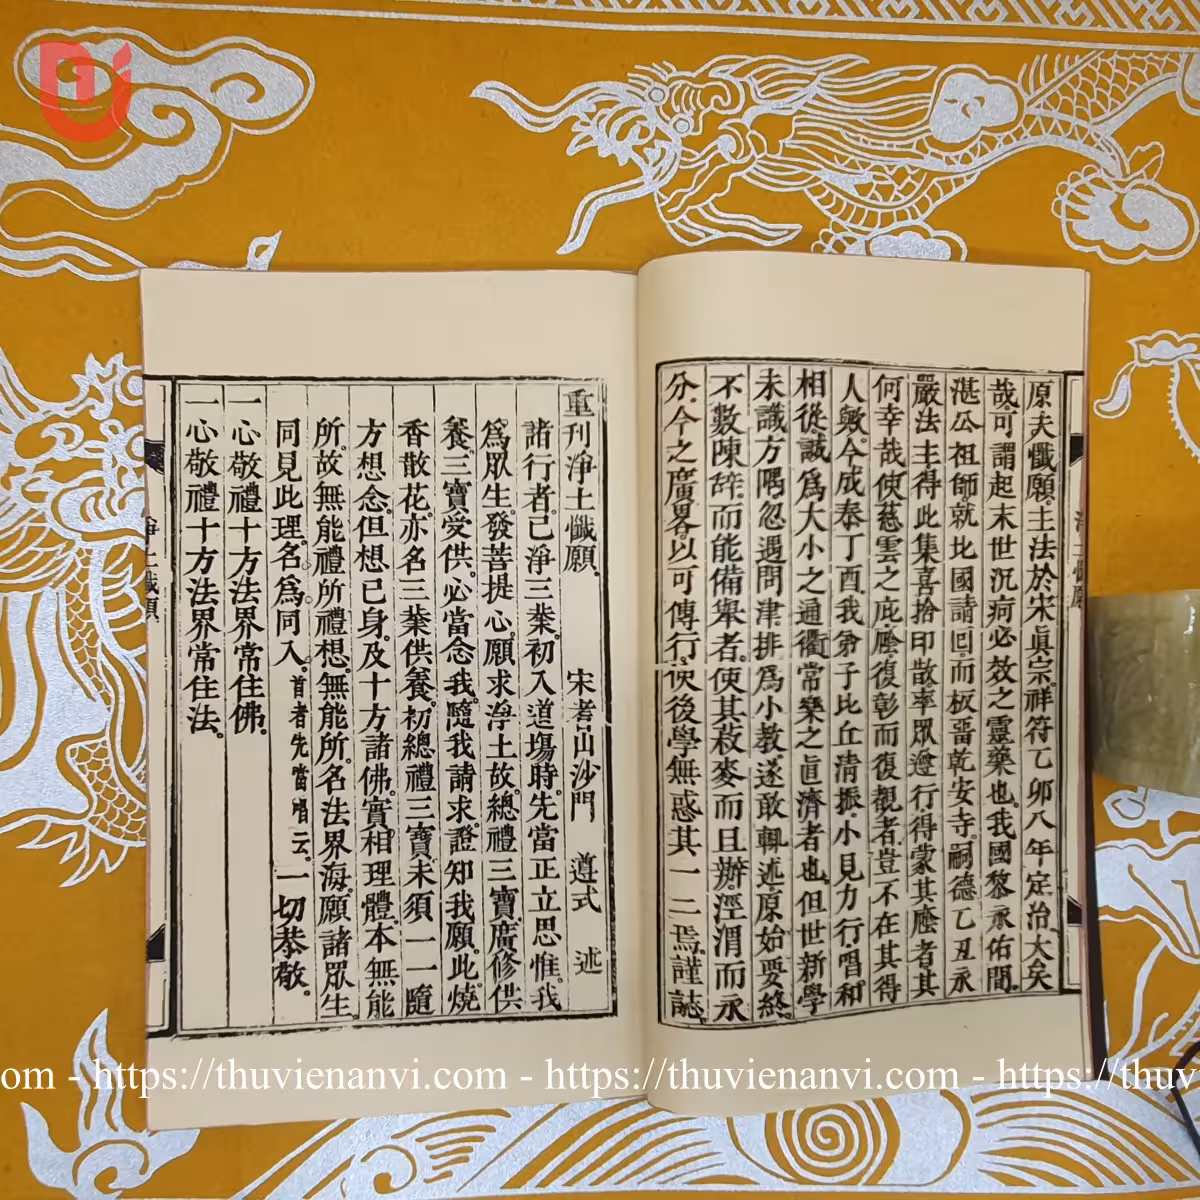 原夫懺願。主法於宋眞宗。祥符乙卯八年定治。大矣
哉。可謂起末世沉痾必效之靈藥也。我國黎永佑間。
湛公祖師就北國請回。而板畱乾安寺。嗣德乙丑永
嚴法主得此集喜捨印散率眾遵行得蒙其廕者其
何幸哉使慈雲之庇廕復彰而復覩者豈不在其得
人歟。今成泰丁酉我弟子比丘清振。小見力行唱和
相從誠爲大小之通衢。常樂之眞濟者也。但世新學
未識方隅忽遇問津排爲小教遂敢輙述原始要終。
不敷陳辞而能備舉者使其菽麥而且辦。涇渭而永
分。今之廣畧以可傳行使後學無惑其一二焉。謹誌
淨土懺願
重刊淨土懺願。 宋耆山沙門 遵式 述
諸行者。已淨三業。初入道塲時。先當正立思惟。我
爲眾生。發菩提心。願求淨土。故總禮三寶。廣修供
養。三寶受供。必當念我。隨我請求。證知我願。此燒
香散花。亦名三業供養。初總禮三寶。未須一一隨
方想念。但想已身。及十方諸佛。實相理體。本無能
所。故無能禮所禮想。無能所。名法界海。願諸眾生
同見此理。名爲同入。首者先當唱云。一切恭敬。
一心敬禮十方法界常住佛。
一心敬禮十方法界常住法。
淨土懺願
om - https://thuvienanvi.com - https://thuvienanvi.com - https://thuv